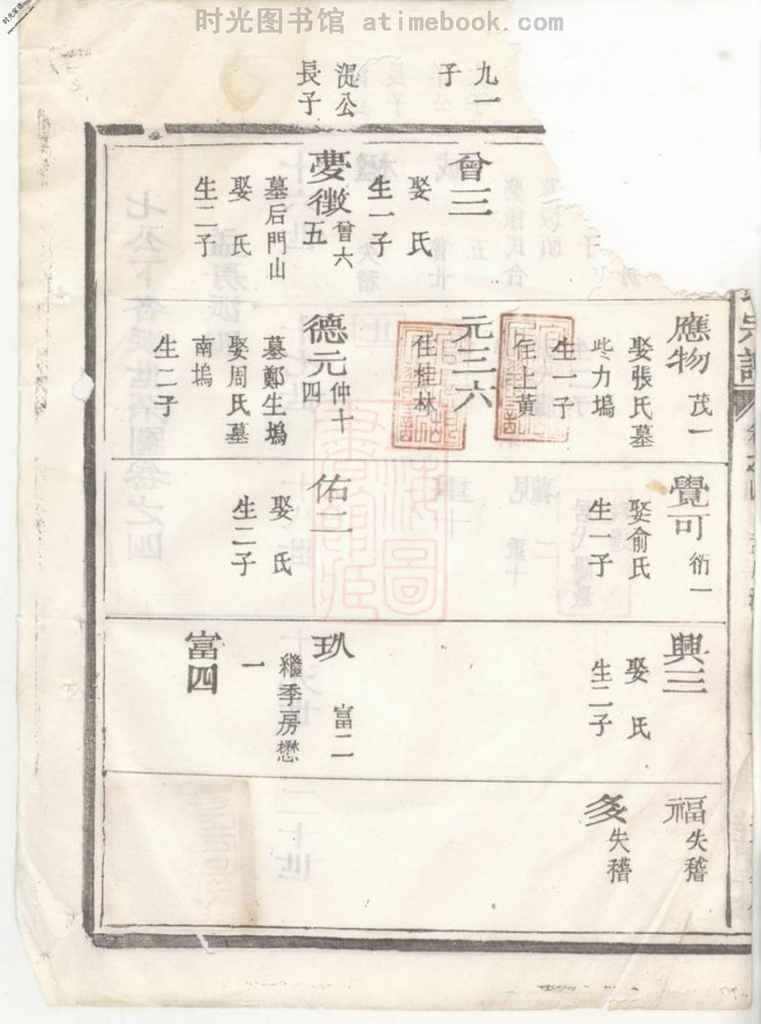 时光图书馆 atimebook.com
九一
子
混公
長子
曾三
娶 氏
生一子
夢徵 曾六
五
墓后門山
娶 氏
生二子
應物 茂一
娶張氏墓
生一子
住上黃
元三六
住桂林
德元 仲十
四
墓鄭生塢
娶周氏墓
南塢
生二子
覺可 衍一
娶俞氏
生一子
佑二
娶 氏
生二子
興三
娶 氏
生二子
玖 富二
繼季房懋
一
富四
福 失稽
失稽